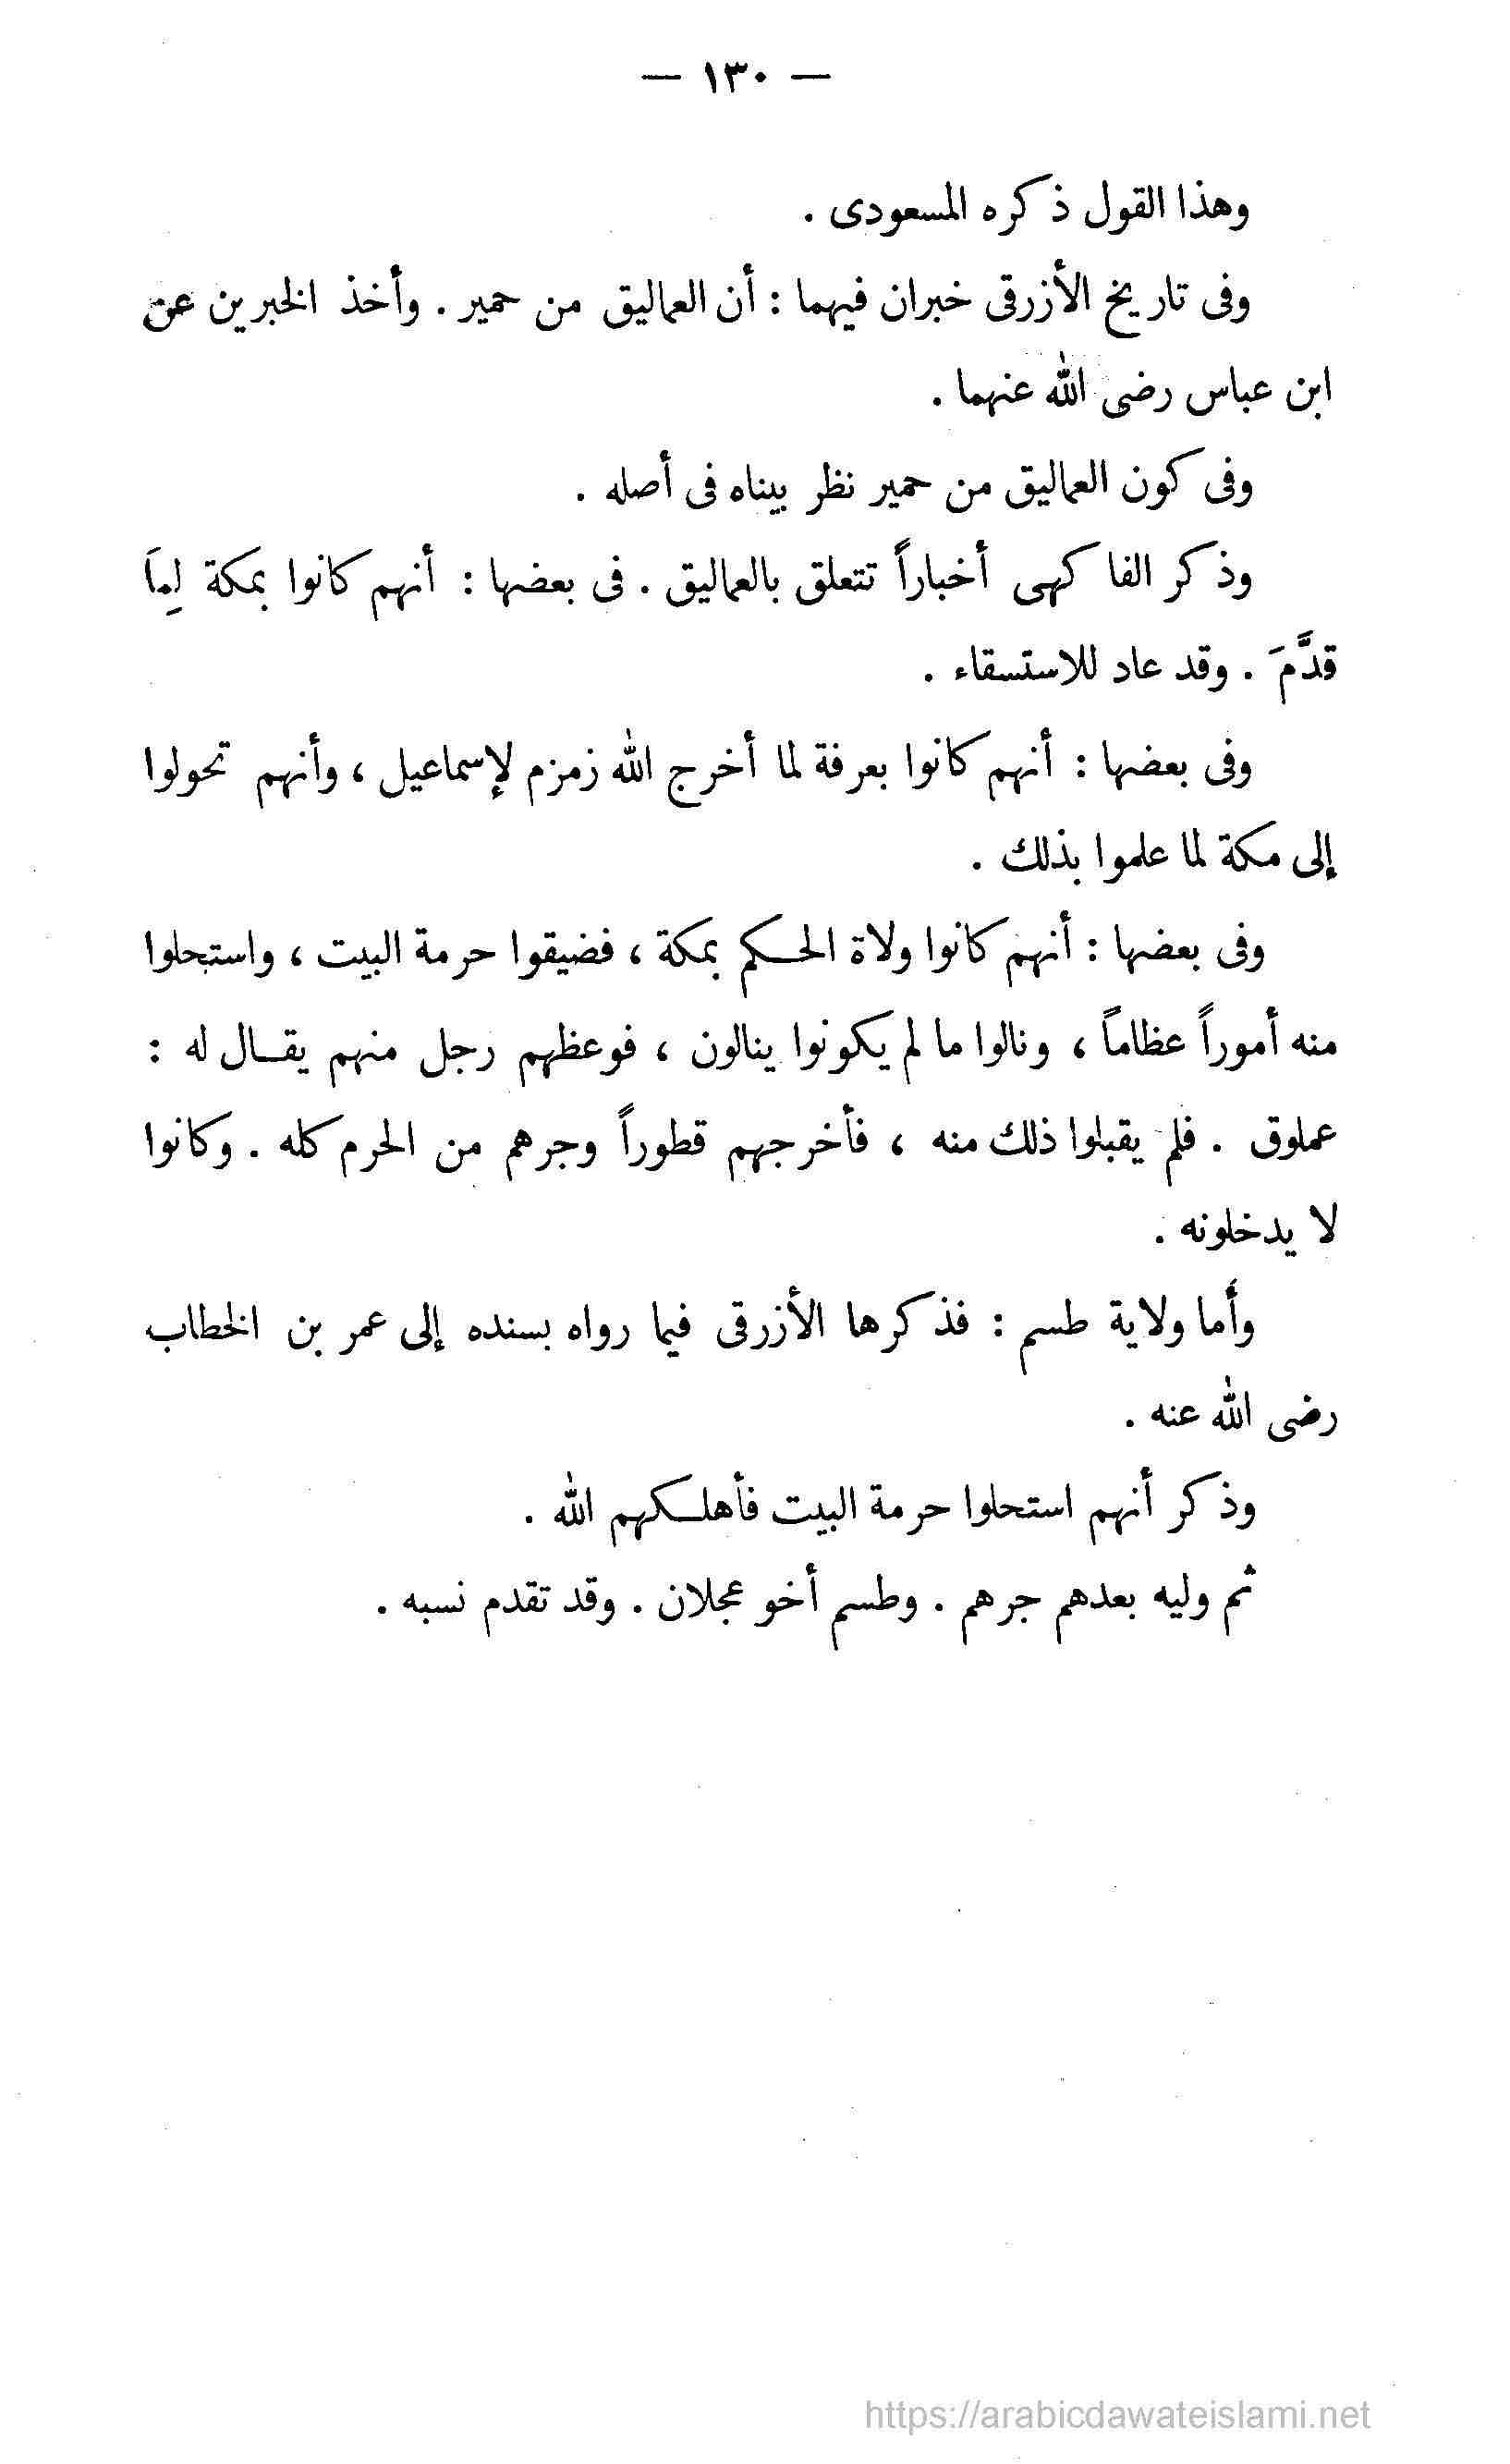 — ١٣٠ —
وهذا القول ذكره المسعودى .
وفى تاريخ الأزرقى خبران فيهما : أن العماليق من حمير . وأخذ الخبرين عن
ابن عباس رضى الله عنهما .
وفى كون العماليق من حمير نظر بيناه فى أصله .
وذكر الفاكهى أخباراً تتعلق بالعماليق . فى بعضها : أنهم كانوا بمكة لِما
قدَّمَ . وقد عاد للاستسقاء .
وفى بعضها : أنهم كانوا بعرفة لما أخرج الله زمزم لإسماعيل ، وأنهم تحولوا
إلى مكة لما علموا بذلك .
وفى بعضها : أنهم كانوا ولاة الحكم بمكة ، فضيقوا حرمة البيت ، واستحلوا
منه أموراً عظاماً ، ونالوا ما لم يكونوا ينالون ، فوعظهم رجل منهم يقال له :
عملوق . فلم يقبلوا ذلك منه ، فأخرجهم قطوراً وجرهم من الحرم كله . وكانوا
لا يدخلونه .
وأما ولاية طسم : فذكرها الأزرقى فيما رواه بسنده إلى عمر بن الخطاب
رضى الله عنه .
وذكر أنهم استحلوا حرمة البيت فأهلكهم الله .
ثم وليه بعدهم جرهم . وطسم أخو عجلان . وقد تقدم نسبه .
https://arabicdawateislami.net